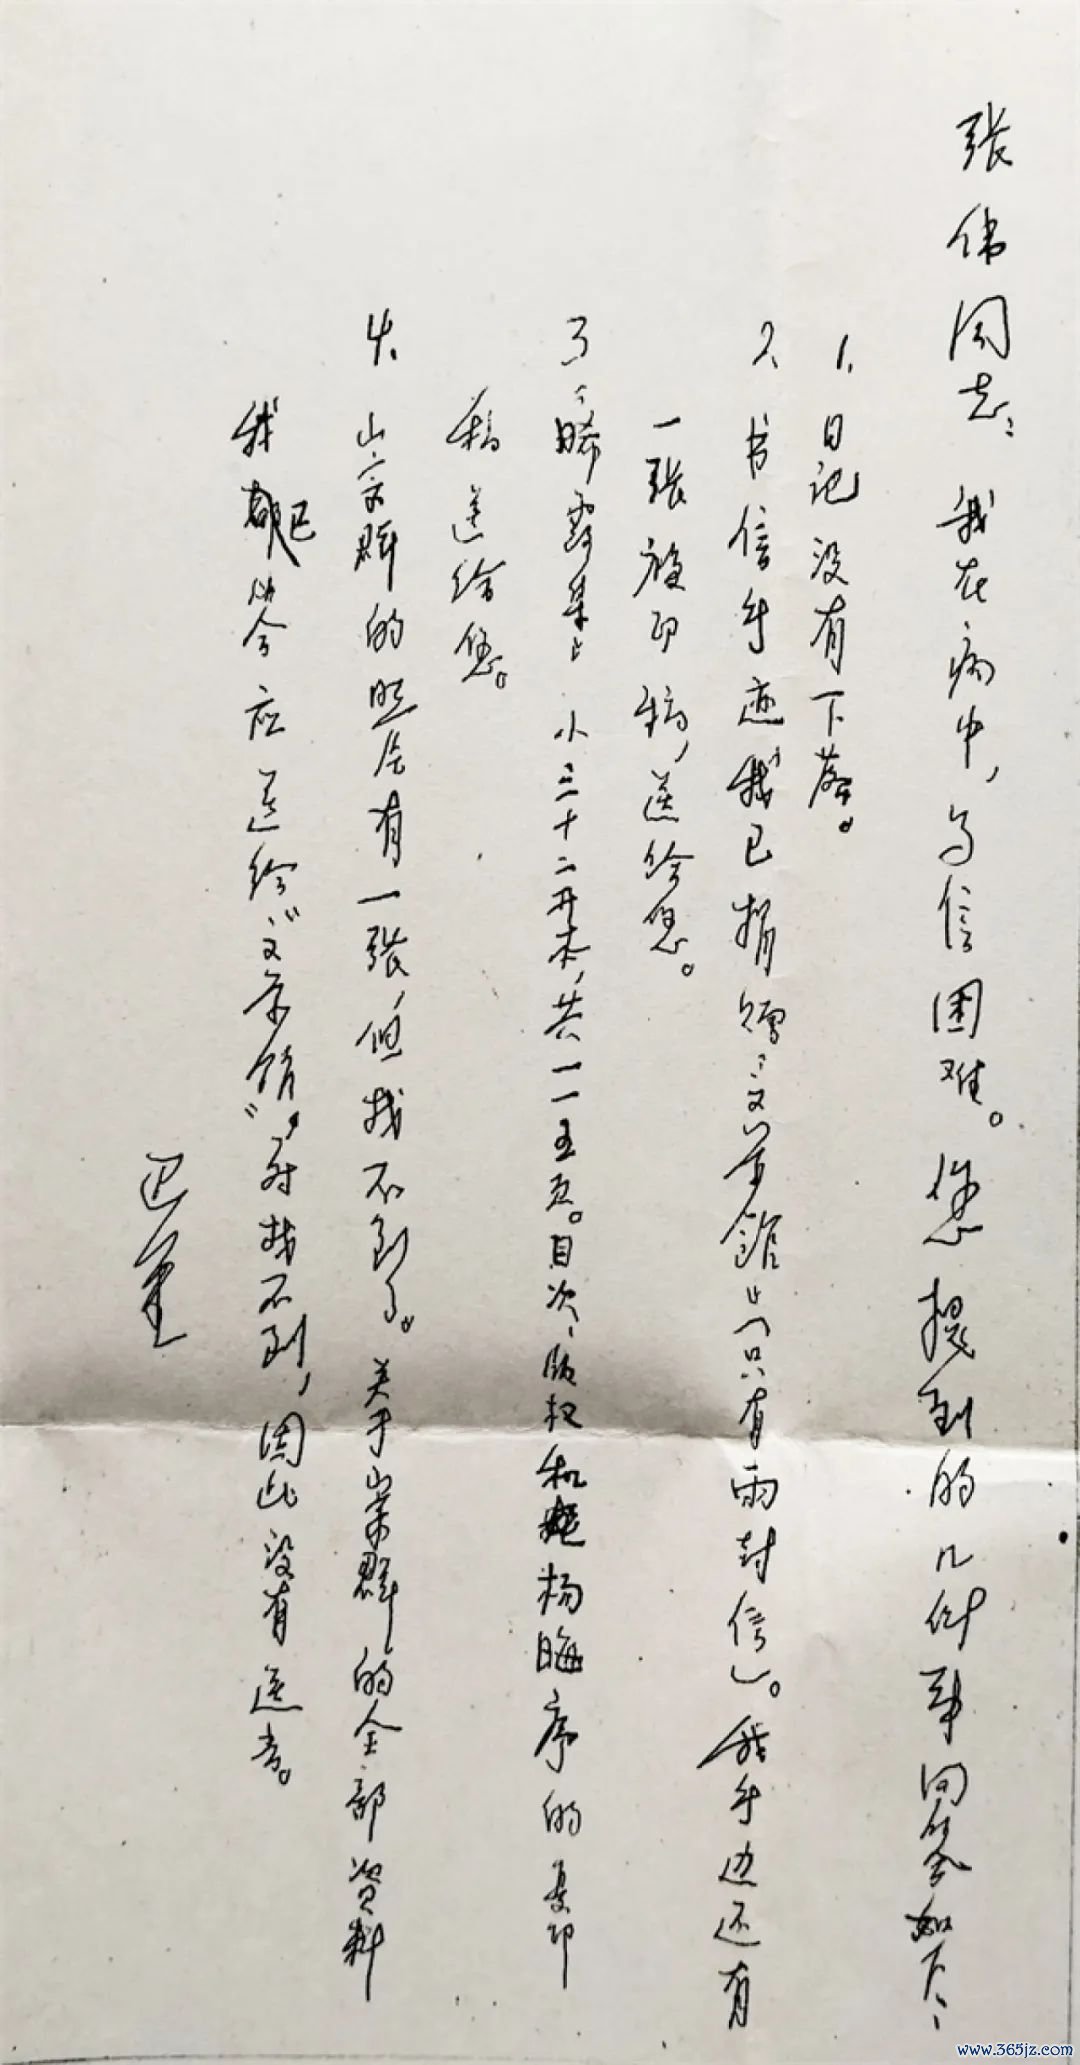 張伟同志：我在病中，写信困难。您提到的几件事回答如下：
1、日记没有下落。
2、书信手迹我已捐赠“文学馆”（只有两封信）。我手边还有
一张複印稿，送给您。
3、《晞露集》小三十二开本，共一一五页。目次、版权和杨晦序的复印
稿送给您。
4、山宗群的照片有一张，但找不到了。关于宗群的全部资料
我都已答应送给“文学馆”，有找不到，因此没有送去。
www.365jz.com